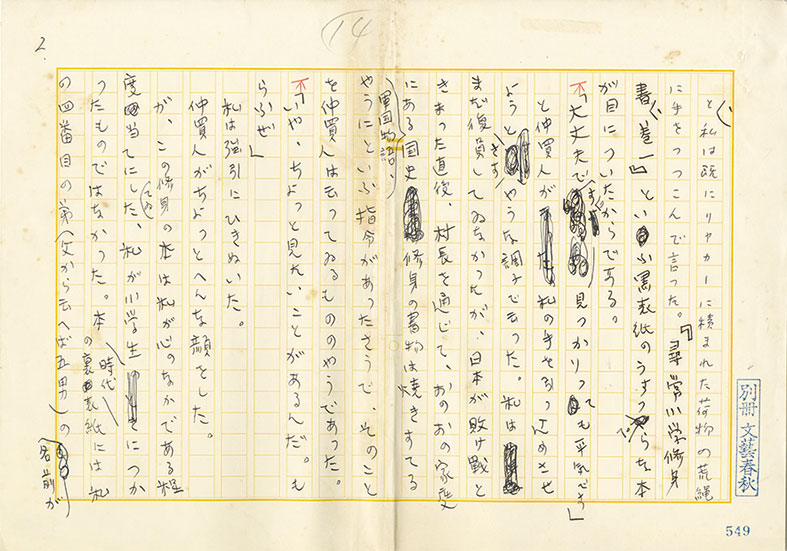 2.
14
と、私は既にリヤカーに積まれた荷物の荒縄
に手をつっこんで言った。『尋常小学修身
書、巻一』といふ黒表紙のうすっぺらな本
が目についたからである。
「大丈夫です。見つかりっても平気です」
と仲買人が私の手をひっこめさせ
ようとさすやうな調子で云った。私は
まだ復員してゐなかったが、日本が敗け戦と
きまった直後、村長を通じて、おのおの家庭
にある国史修身の書物は焼きすてる
軍国物語、
やうにといふ指令があったさうで、そのこと
を仲買人は云ってゐるもののやうであった。
「いや、ちょっと見たいことがあるんだ。も
らふぜ」
私は強引にひきぬいた。
仲買人がちょっとへんな顔をした。
が、この修身の本は私が心のなかである程
度当てにした、私が小学生時代につか
ったものではなかった。本の裏表紙には私
の四番目の弟(父から云へば五男)の名前が
別冊 文藝春秋
549